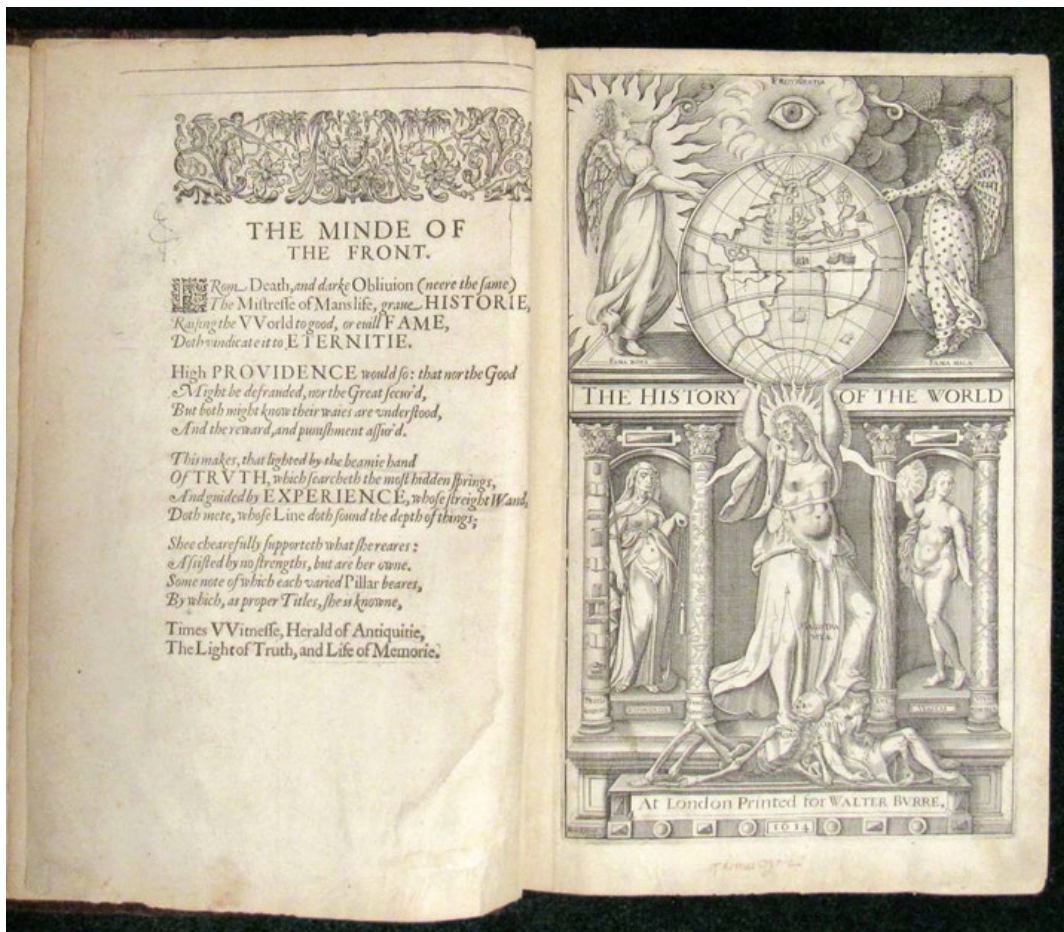 THE MINDE OF
THE FRONT.
FRom Death, and darke Obliuion (neere the same)
The Mistresse of Mans life, graue HISTORIE,
Raising the VVorld to good, or euill FAME,
Doth vindicate it to ETERNITIE.
High PROVIDENCE would so: that nor the Good
Might be defrauded, nor the Great secur'd,
But both might know their waies are vnderstood,
And the reward, and punishment assur'd.
This makes, that lighted by the beamie hand
Of TRVTH, which searcheth the most hidden springs,
And guided by EXPERIENCE, whose streight Wand,
Doth mete, whose Line doth sound the depth of things;
Shee chearefully supporteth what she reares:
Assisted by no strengths, but are her owne.
Some note of which each varied Pillar beares,
By which, as proper Titles, she is knowne,
Times VVitnesse, Herald of Antiquitie,
The Light of Truth, and Life of Memorie.
PROVIDENTIA
FAMA BONA
FAMA MALA
THE HISTORY OF THE WORLD
MAGISTRA
VITAE
EXPERIENTIA
VERITAS
At London Printed for WALTER BVRRE.
1614